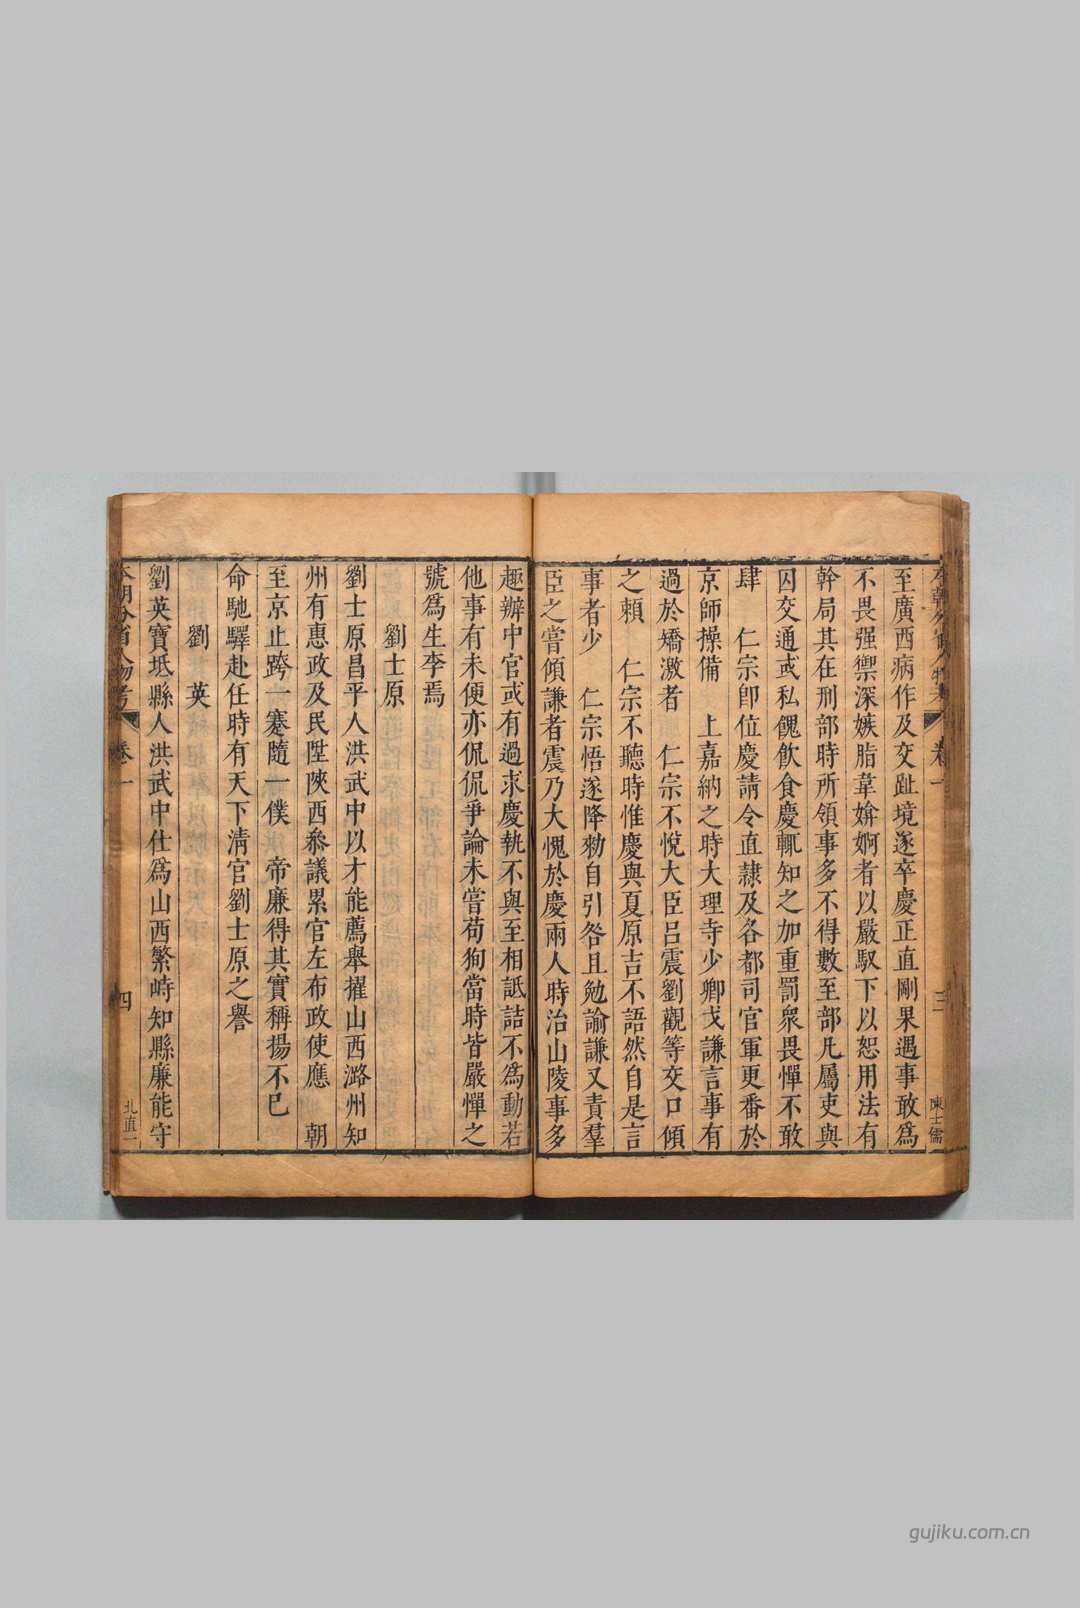 至廣西病作及交趾境遂卒慶正直剛果遇事敢爲
不畏强禦深嫉脂韋媕婀者以嚴馭下以恕用法有
幹局其在刑部時所領事多不得數至部凡屬吏與
囚交通或私餽飲食慶輒知之加重罰衆畏憚不敢
肆　仁宗卽位慶請令直隷及各都司官軍更番於
京師操備　上嘉納之時大理寺少卿戈謙言事有
過於矯激者　仁宗不悅大臣呂震劉觀等交口傾
之頼　仁宗不聽時惟慶與夏原吉不語然自是言
事者少　仁宗悟遂降勑自引咎且勉諭謙又責羣
臣之嘗傾謙者震乃大愧於慶兩人時治山陵事多
趣辦中官或有過求慶執不與至相詆詰不爲動若
他事有未便亦侃侃爭論未嘗苟狥當時皆嚴憚之
號爲生李焉
劉士原
劉士原昌平人洪武中以才能薦舉擢山西潞州知
州有惠政及民陞陝西叅議累官左布政使應　朝
至京止跨一蹇隨一僕　帝廉得其實稱揚不已
命馳驛赴任時有天下清官劉士原之譽
劉　英
劉英寶坻縣人洪武中仕爲山西繁峙知縣廉能守
本朝分省人物考
卷一
三
陳士儒
本朝分省人物考
卷一
四
北直一
gujiku.com.cn